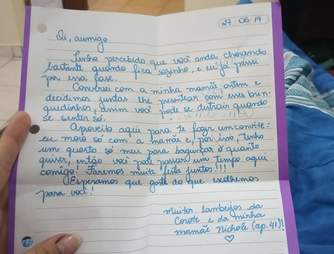 27.06.19
Oi, aumigo
Tenho percebido que você anda chorando
bastante quando fica sozinho, e eu já passei
por essa fase.
Conversei com a minha mamãe ontem e
decidimos juntas lhe presentear com esse brin-
quedinho, assim você pode se distrair quando
se sentir só.
Aproveito aqui para te fazer um convite:
eu moro só com a mamãe e, por isso, tenho
um quarto só meu para bagunçar o quanto
quiser, então você pode passar um tempo aqui
comigo! Faremos muita festa juntos!!!
Esperamos que goste do que escolhemos
para você!
muitos lambeijos da
e da minha
mamãe Nichole (ap. 41)!
♡